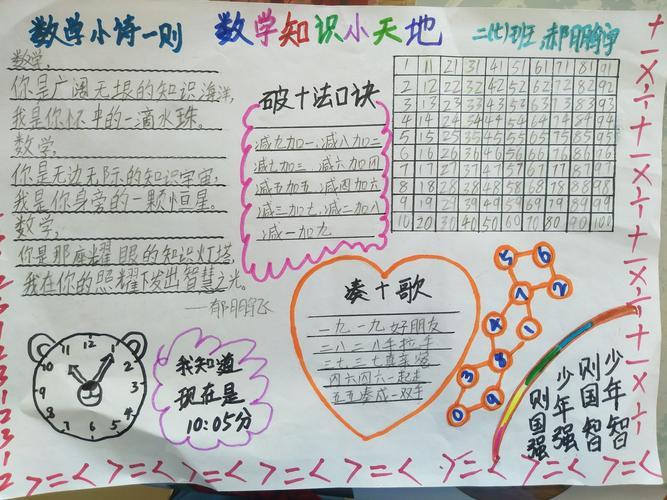 数学小诗一则
数学知识小天地
二(七)班
数学,
你是广阔无垠的知识海洋,
我是你怀中的一滴水珠。
数学,
你是无边无际的知识宇宙,
我是你身旁的一颗恒星。
数学,
你是那座耀眼的知识灯塔,
我在你的照耀下发出智慧之光。
破十法口诀
减九加一、减八加二
减七加三、减六加四
减五加五、减四加六
减三加七、减二加八
减一加九
1 11 21 31 41 51 61 71 81 91
2 12 22 32 42 52 62 72 82 92
3 13 23 33 43 53 63 73 83 93
4 14 24 34 44 54 64 74 84 94
5 15 25 35 45 55 65 75 85 95
6 16 26 36 46 56 66 76 86 96
7 17 27 37 47 57 67 77 87 97
8 18 28 38 48 58 68 78 88 98
9 19 29 39 49 59 69 79 89 99
10 20 30 40 50 60 70 80 90 100
凑十歌
一九一九好朋友
二八二八手拉手
三七三七真车密
四六四六一起走
五五凑成一双手
12 1 2 3 4 5 6 7 8 9 10 11
我知道
现在是
10:05分
少年智
则国智
少年强
则国强